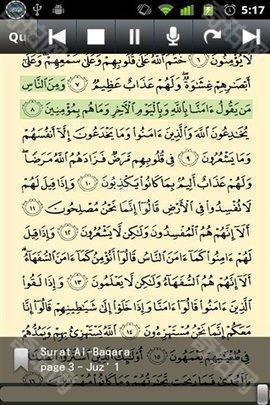 5:17
Qu
لَا يُؤْمِنُونَ ٦ خَتَمَ ٱللَّهُ عَلَىٰ قُلُوبِهِمْ وَعَلَىٰ سَمْعِهِمْ وَعَلَىٰ
أَبْصَٰرِهِمْ غِشَٰوَةٌ وَلَهُمْ عَذَابٌ عَظِيمٌ ٧ وَمِنَ ٱلنَّاسِ
مَن يَقُولُ ءَامَنَّا بِٱللَّهِ وَبِٱلْيَوْمِ ٱلْءَاخِرِ وَمَا هُم بِمُؤْمِنِينَ ٨
يُخَٰدِعُونَ ٱللَّهَ وَٱلَّذِينَ ءَامَنُوا۟ وَمَا يَخْدَعُونَ إِلَّآ أَنفُسَهُمْ
وَمَا يَشْعُرُونَ ٩ فِى قُلُوبِهِم مَّرَضٌ فَزَادَهُمُ ٱللَّهُ مَرَضًا
وَلَهُمْ عَذَابٌ أَلِيمٌۢ بِمَا كَانُوا۟ يَكْذِبُونَ ١٠ وَإِذَا قِيلَ لَهُمْ
لَا تُفْسِدُوا۟ فِى ٱلْأَرْضِ قَالُوٓا۟ إِنَّمَا نَحْنُ مُصْلِحُونَ ١١
أَلَآ إِنَّهُمْ هُمُ ٱلْمُفْسِدُونَ وَلَٰكِن لَّا يَشْعُرُونَ ١٢ وَإِذَا قِيلَ
لَهُمْ ءَامِنُوا۟ كَمَآ ءَامَنَ ٱلنَّاسُ قَالُوٓا۟ أَنُؤْمِنُ كَمَآ ءَامَنَ ٱلسُّفَهَآءُ
أَلَآ إِنَّهُمْ هُمُ ٱلسُّفَهَآءُ وَلَٰكِن لَّا يَعْلَمُونَ ١٣ وَإِذَا لَقُوا۟
ٱلَّذِينَ ءَامَنُوا۟ قَالُوٓا۟ ءَامَنَّا وَإِذَا خَلَوْا۟ إِلَىٰ شَيَٰطِينِهِمْ قَالُوٓا۟ إِنَّا
مَعَكُمْ إِنَّمَا نَحْنُ مُسْتَهْزِءُونَ ١٤ ٱللَّهُ يَسْتَهْزِئُ بِهِمْ وَيَمُدُّهُمْ
فِى طُغْيَٰنِهِمْ يَعْمَهُونَ ١٥
Surat Al-Baqara
page 3 - Juz' 1